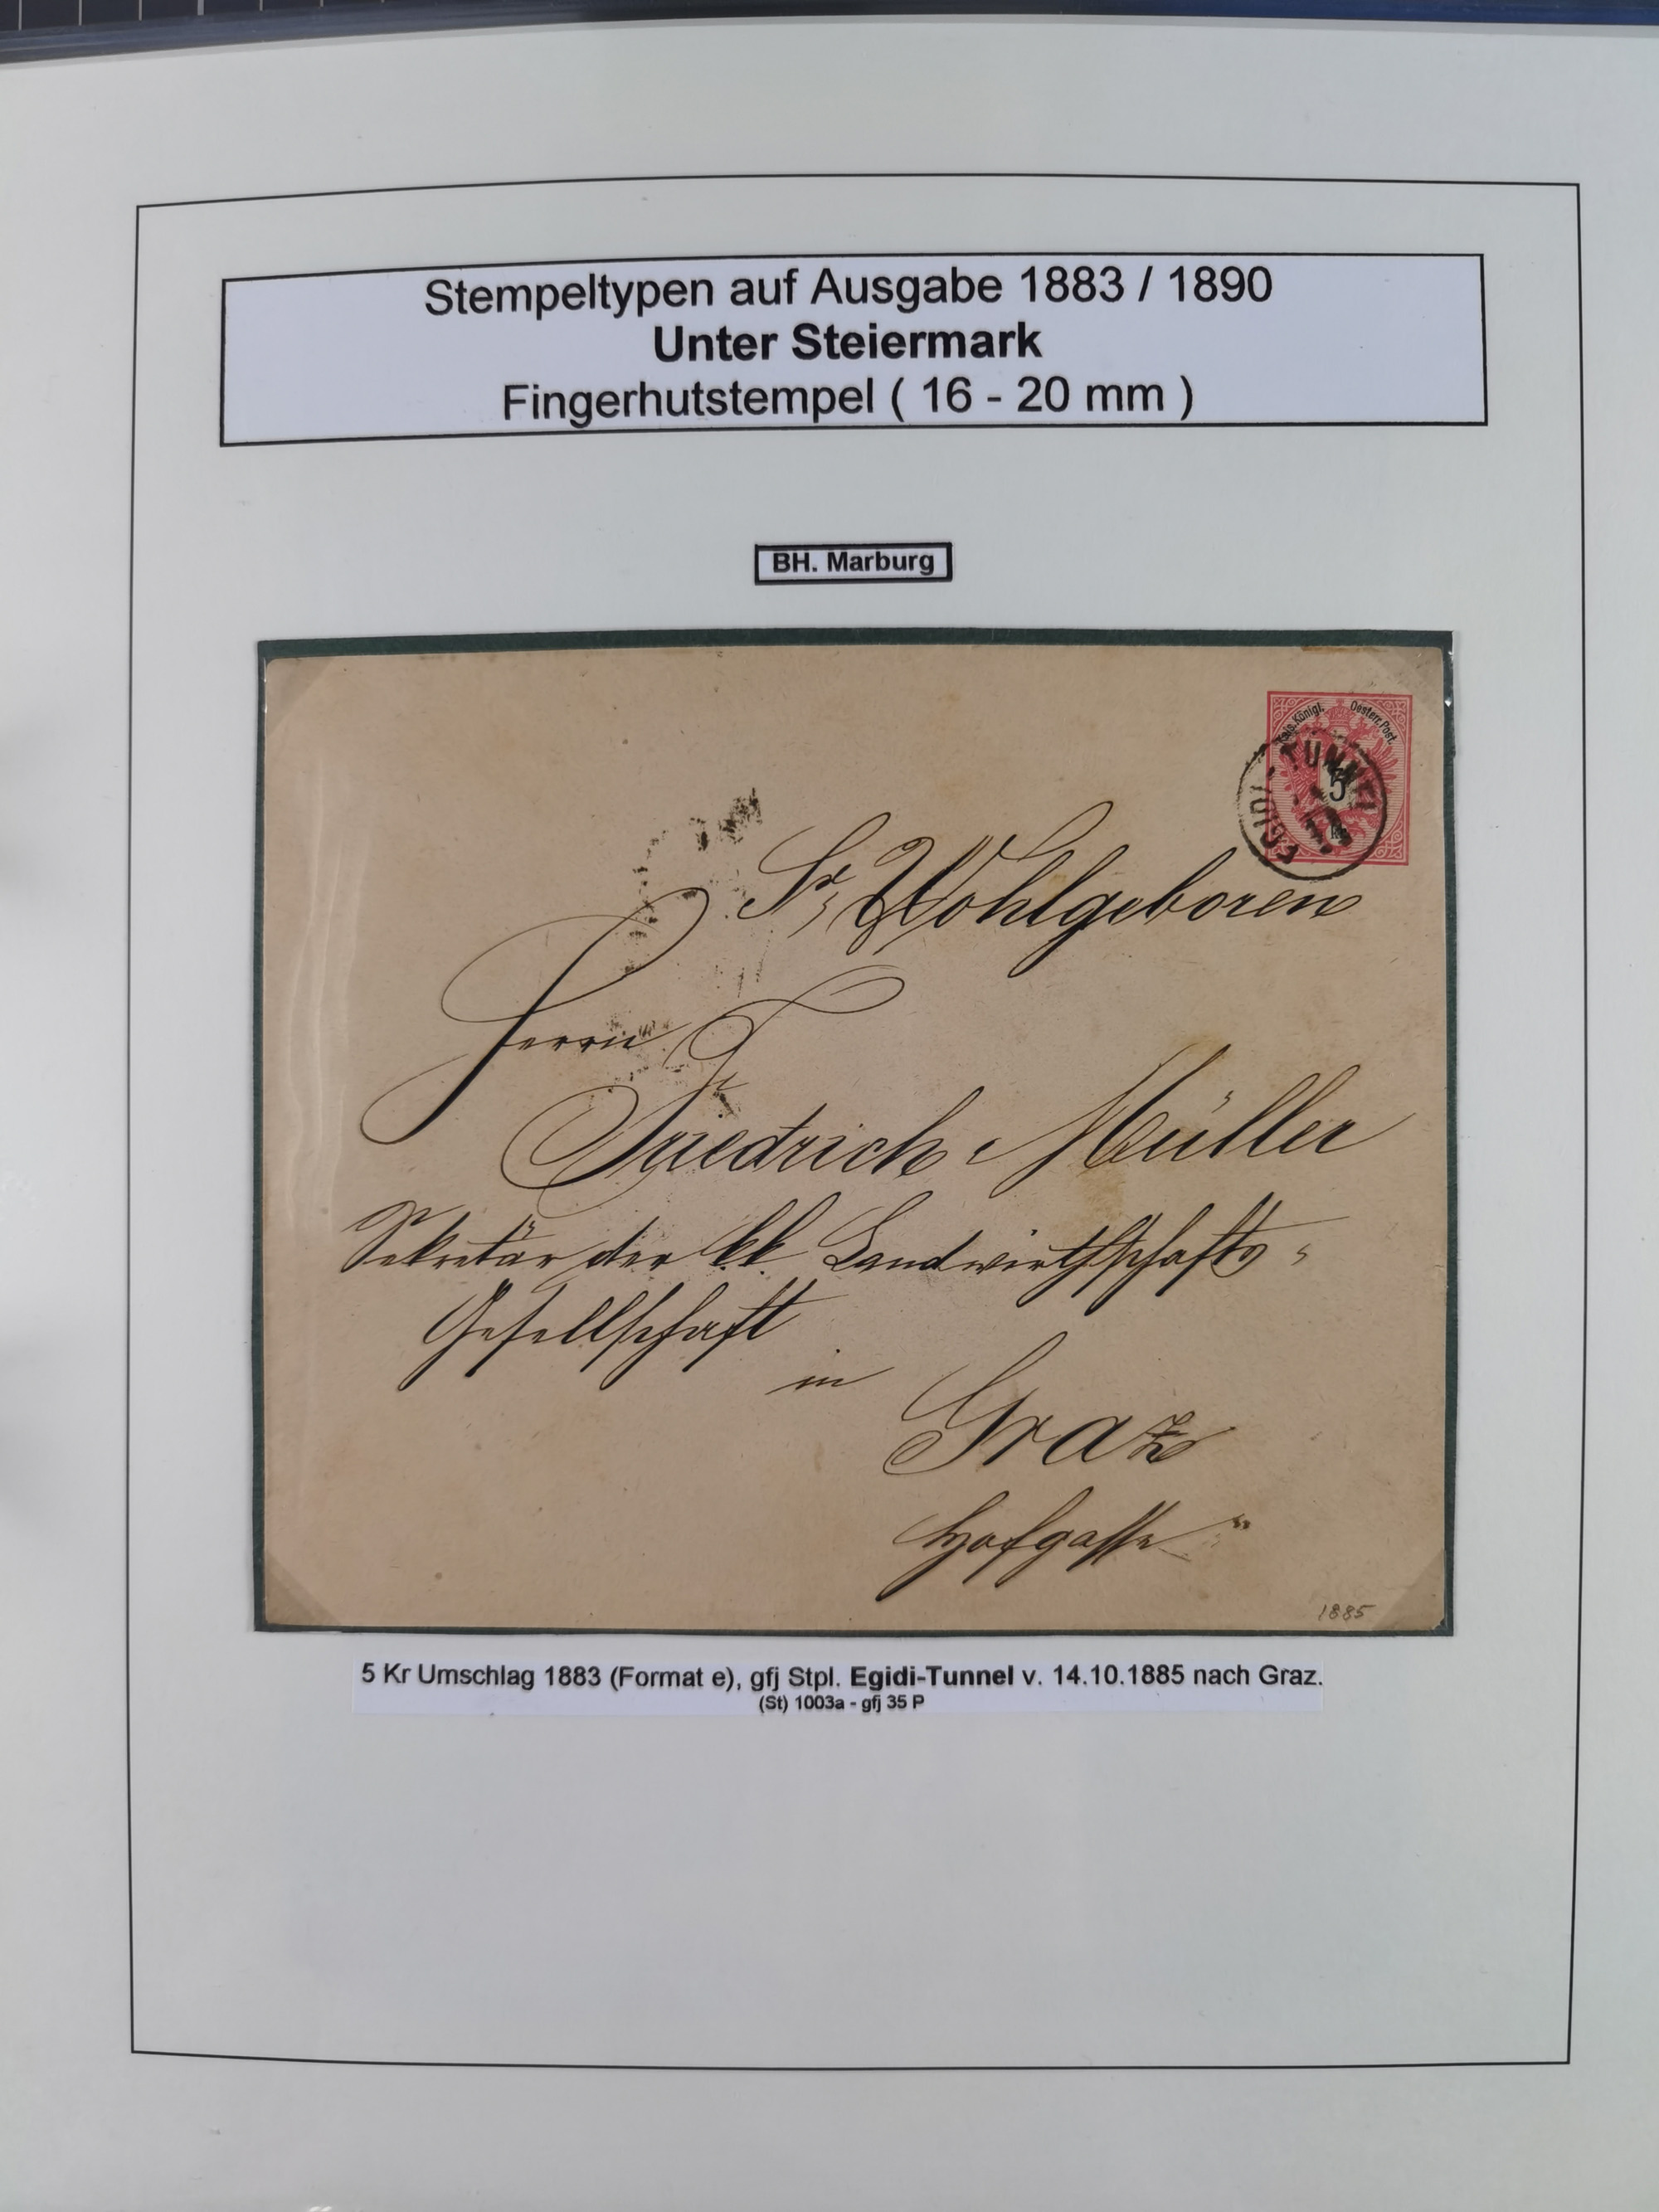 Stempeltypen auf Ausgabe 1883 / 1890
Unter Steiermark
Fingerhutstempel ( 16 - 20 mm )
BH. Marburg
Kais. Königl. Oesterr. Post.
5
EGIDI-TUNNEL
Sr Wohlgeboren
Herrn
Friedrich Müller
Sekretär der kk Landwirthschafts-
Gesellschaft
in
Graz
Hofgasse
1885
5 Kr Umschlag 1883 (Format e), gfj Stpl. Egidi-Tunnel v. 14.10.1885 nach Graz.
(St) 1003a - gfj 35 P